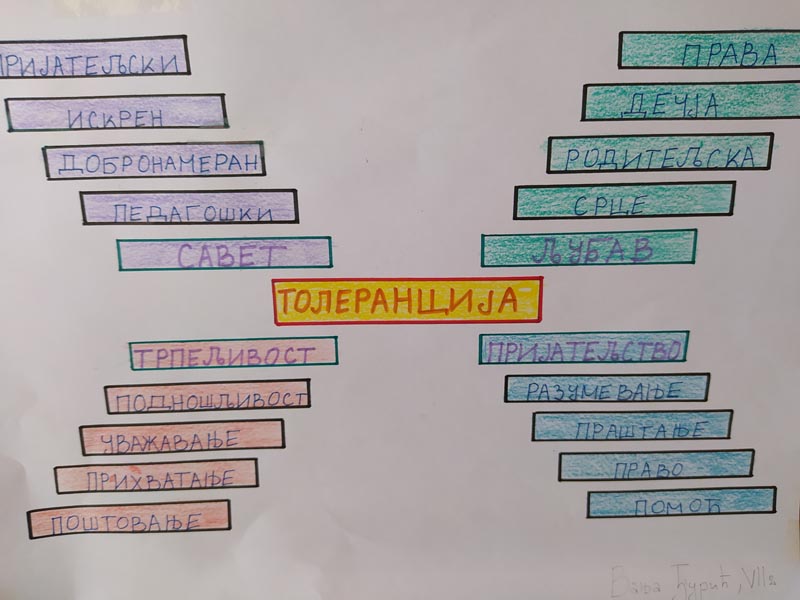 ПРИЈАТЕЉСКИ
ИСКРЕН
ДОБРОНАМЕРАН
ПЕДАГОШКИ
САВЕТ
ПРАВА
ДЕЧЈА
РОДИТЕЉСКА
СРЦЕ
ЉУБАВ
ТОЛЕРАНЦИЈА
ТРПЕЉИВОСТ
ПОДНОШЉИВОСТ
УВАЖАВАЊЕ
ПРИХВАТАЊЕ
ПОШТОВАЊЕ
ПРИЈАТЕЉСТВО
РАЗУМЕВАЊЕ
ПРАШТАЊЕ
ПРАВО
ПОМОЋ
Вања Ђурић, VII2